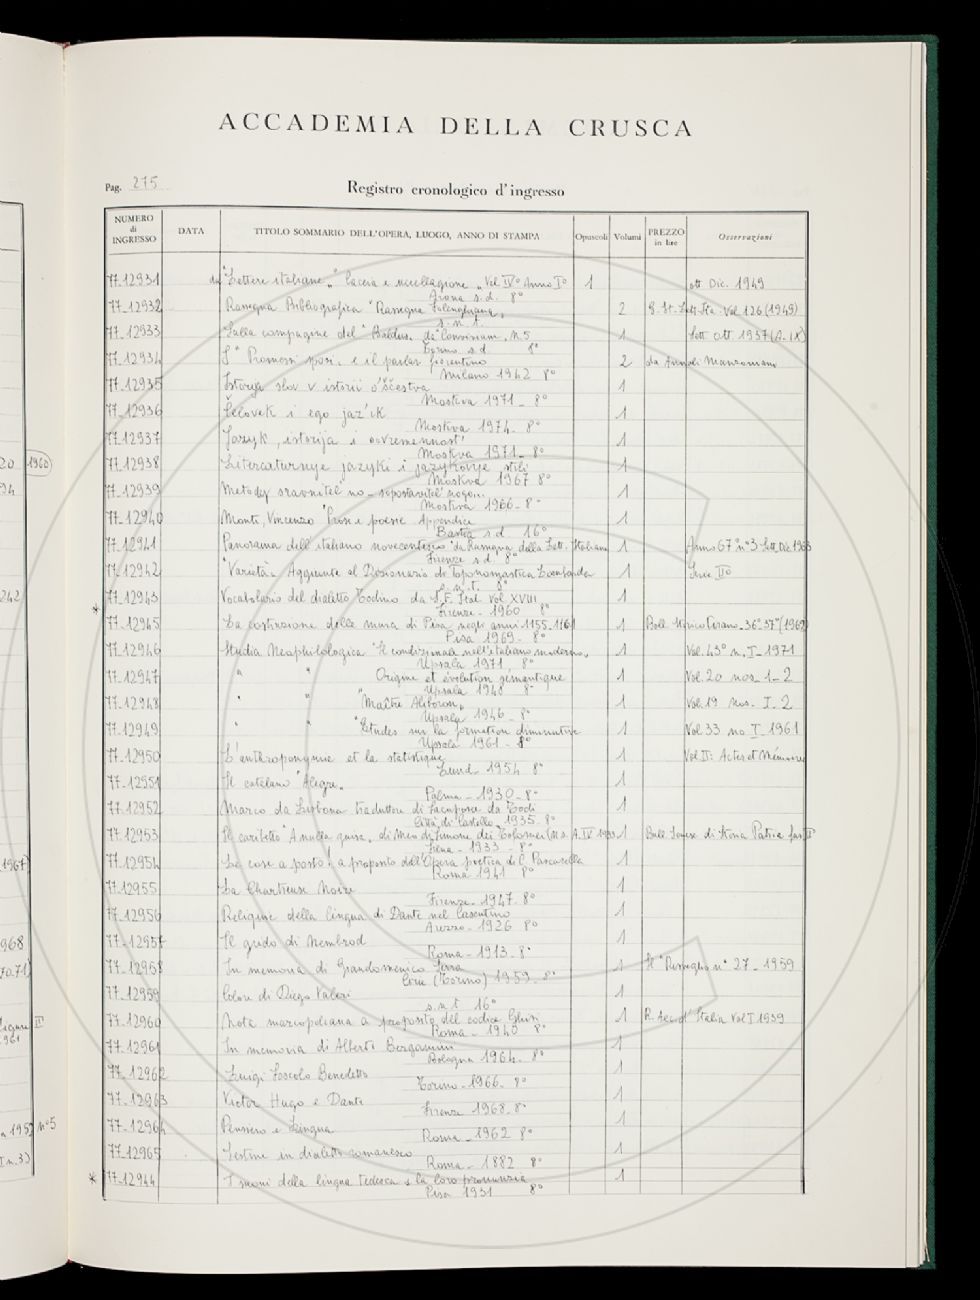 ACCADEMIA DELLA CRUSCA
Pag. 275
Registro cronologico d'ingresso
NUMERO di INGRESSO DATA TITOLO SOMMARIO DELL'OPERA, LUOGO, ANNO DI STAMPA Opuscoli Volumi PREZZO in lire Osservazioni
77-12931 da "Lettere italiane" caccia e uccellagione Vol IV° Anno I° 1 ott. Dic. 1949
Arona s.d. 8°
77-12932 Rassegna Bibliografica "Rassegna Folenghiana" 2 G. St. Lett. Ita. Vol 126 (1949)
s.n.t.
77-12933 Sulla compagine del "Baldus" da "Convivium" N. 5 1 Sett. Ott. 1937 (A. IX)
Torino s.d. 8°
77-12934 I "Promessi sposi" e il parlar fiorentino 2 da Annali Manzoniani
Milano 1942 8°
77-12935 Istorija slov v istorii obščestva 1
Moskva 1971 - 8°
77-12936 Čelovek i ego jazyk 1
Moskva 1974 - 8°
77-12937 Jazyk, istorija i sovremennost' 1
Moskva 1971 - 8°
77-12938 Literaturnye jazyki i jazykovye stili 1
Moskva 1967 8°
77-12939 Metody sravnitel'no-sopostavitel'nogo... 1
Moskva 1966 - 8°
77-12940 Monti, Vincenzo "Prose e poesie Appendice 1
Bastia s.d. 16°
77-12941 Panorama dell'italiano novecentesco "da Rassegna della Lett. Italiana 1 Anno 67° n° 3 Sett. Dic 1963
Firenze s.d. 8°
77-12942 "Varietà" Aggiunte al Dizionario di Toponomastica Lombarda 1 Serie II°
s.n.t. 8°
77-12943 Vocabolario del dialetto Todino da S.F. Ital. Vol. XVIII 1
Firenze - 1960 8°
* 77-12945 La costruzione delle mura di Pisa negli anni 1155-1161 1 Boll. Storico Pisano 36° 37° (1969)
Pisa 1969 - 8°
77-12946 Studia Neophilologica "Il condizionale nell'italiano moderno" 1 Vol. 43° n. I - 1971
Upsala 1971, 8°
77-12947 " " Origine et évolution semantique 1 Vol. 20 nos 1-2
Upsala 1948 8°
77-12948 " " "Maître Aliboron" 1 Vol. 19 Nos. I-2
Upsala 1946 - 8°
77-12949 " " "Etudes sur la formation diminutive 1 Vol 33 no I 1961
Upsala 1961 - 8°
77-12950 L'anthroponymie et la statistique 1 Vol. II: Actes et Mémoires
Lund 1954 8°
77-12951 Il catalano "Alegre" 1
Palma - 1930 - 8°
77-12952 Marco da Lisbona traduttore di Jacopone da Todi 1
Città di Castello 1935 - 8°
77-12953 Il caribetto "A nulla guisa" di Meo di Simone dei Tolomei 1 Bull. Senese di Storia Patria fas. II
Siena - 1933 - 8°
77-12954 Le cose a posto! a proposito dell'Opera poetica di C. Pascarella 1
Roma 1941 8°
77-12955 La Chartreuse Noire 1
Firenze - 1947 - 8°
77-12956 Reliquie della lingua di Dante nel Casentino 1
Arezzo - 1926 8°
77-12957 Il grido di Nembrod 1
Roma - 1913 - 8°
77-12958 In memoria di Grandomenico Serra 1 N° 27 - 1959
Ciriè (Torino) 1959 - 8°
77-12959 Colori di Diego Valeri 1
s.n.t. 16°
77-12960 Nota marcopoliana a proposito del codice Ghisi 1 R. Accad. d'Italia Vol I 1939
Roma - 1940 8°
77-12961 In memoria di Alberti Bergamini 1
Bologna 1964 - 8°
77-12962 Luigi Foscolo Benedetto 1
Torino - 1966 - 8°
77-12963 Victor Hugo e Dante 1
Firenze 1968 - 8°
77-12964 Pensiero e Lingua 1
Roma - 1962 8°
77-12965 Sestine in dialetto romanesco 1
Roma - 1882 8°
* 77-12944 I suoni della lingua tedesca e la loro pronunzia 1
Pisa 1931 8°